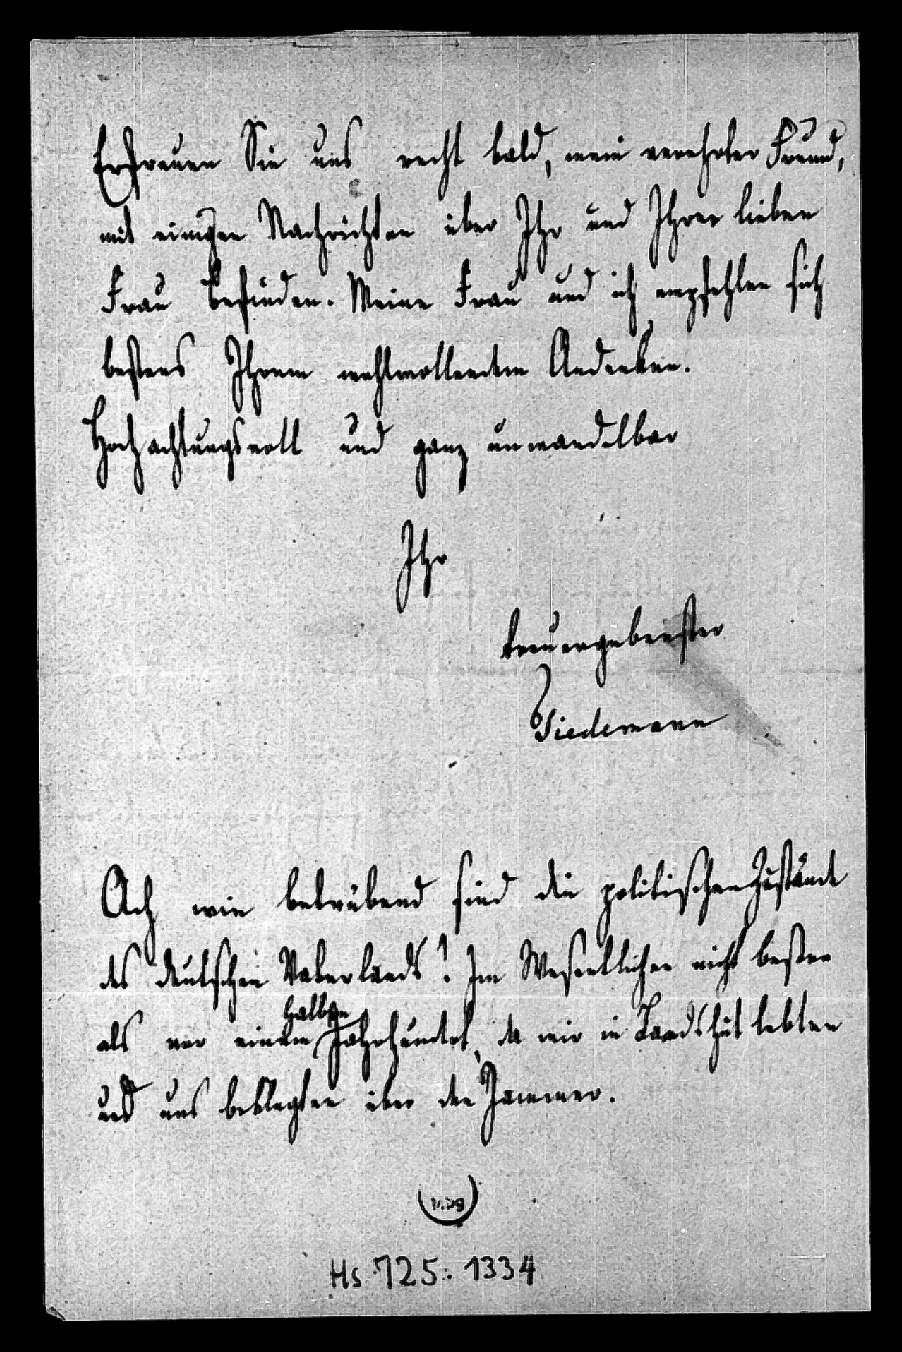 Erfreuen Sie uns recht bald, mein verehrter Freund,
mit einigen Nachrichten über Ihr und Ihrer lieben
Frau Befinden. Meine Frau und ich empfehlen sich
bestens Ihrem wohlwollendem Andenken.
Hochachtungsvoll und ganz unwandelbar
Ihr
treuergebenster
Tiedemann
Ach wie betrübend sind die politischen Zustände
des deutschen Vaterlands! Im Wesentlichen nicht besser
halben
als vor einem Jahrhundert, da wir in Landshut lebten
und uns beklagten über den Jammer.
Hs 725: 1334